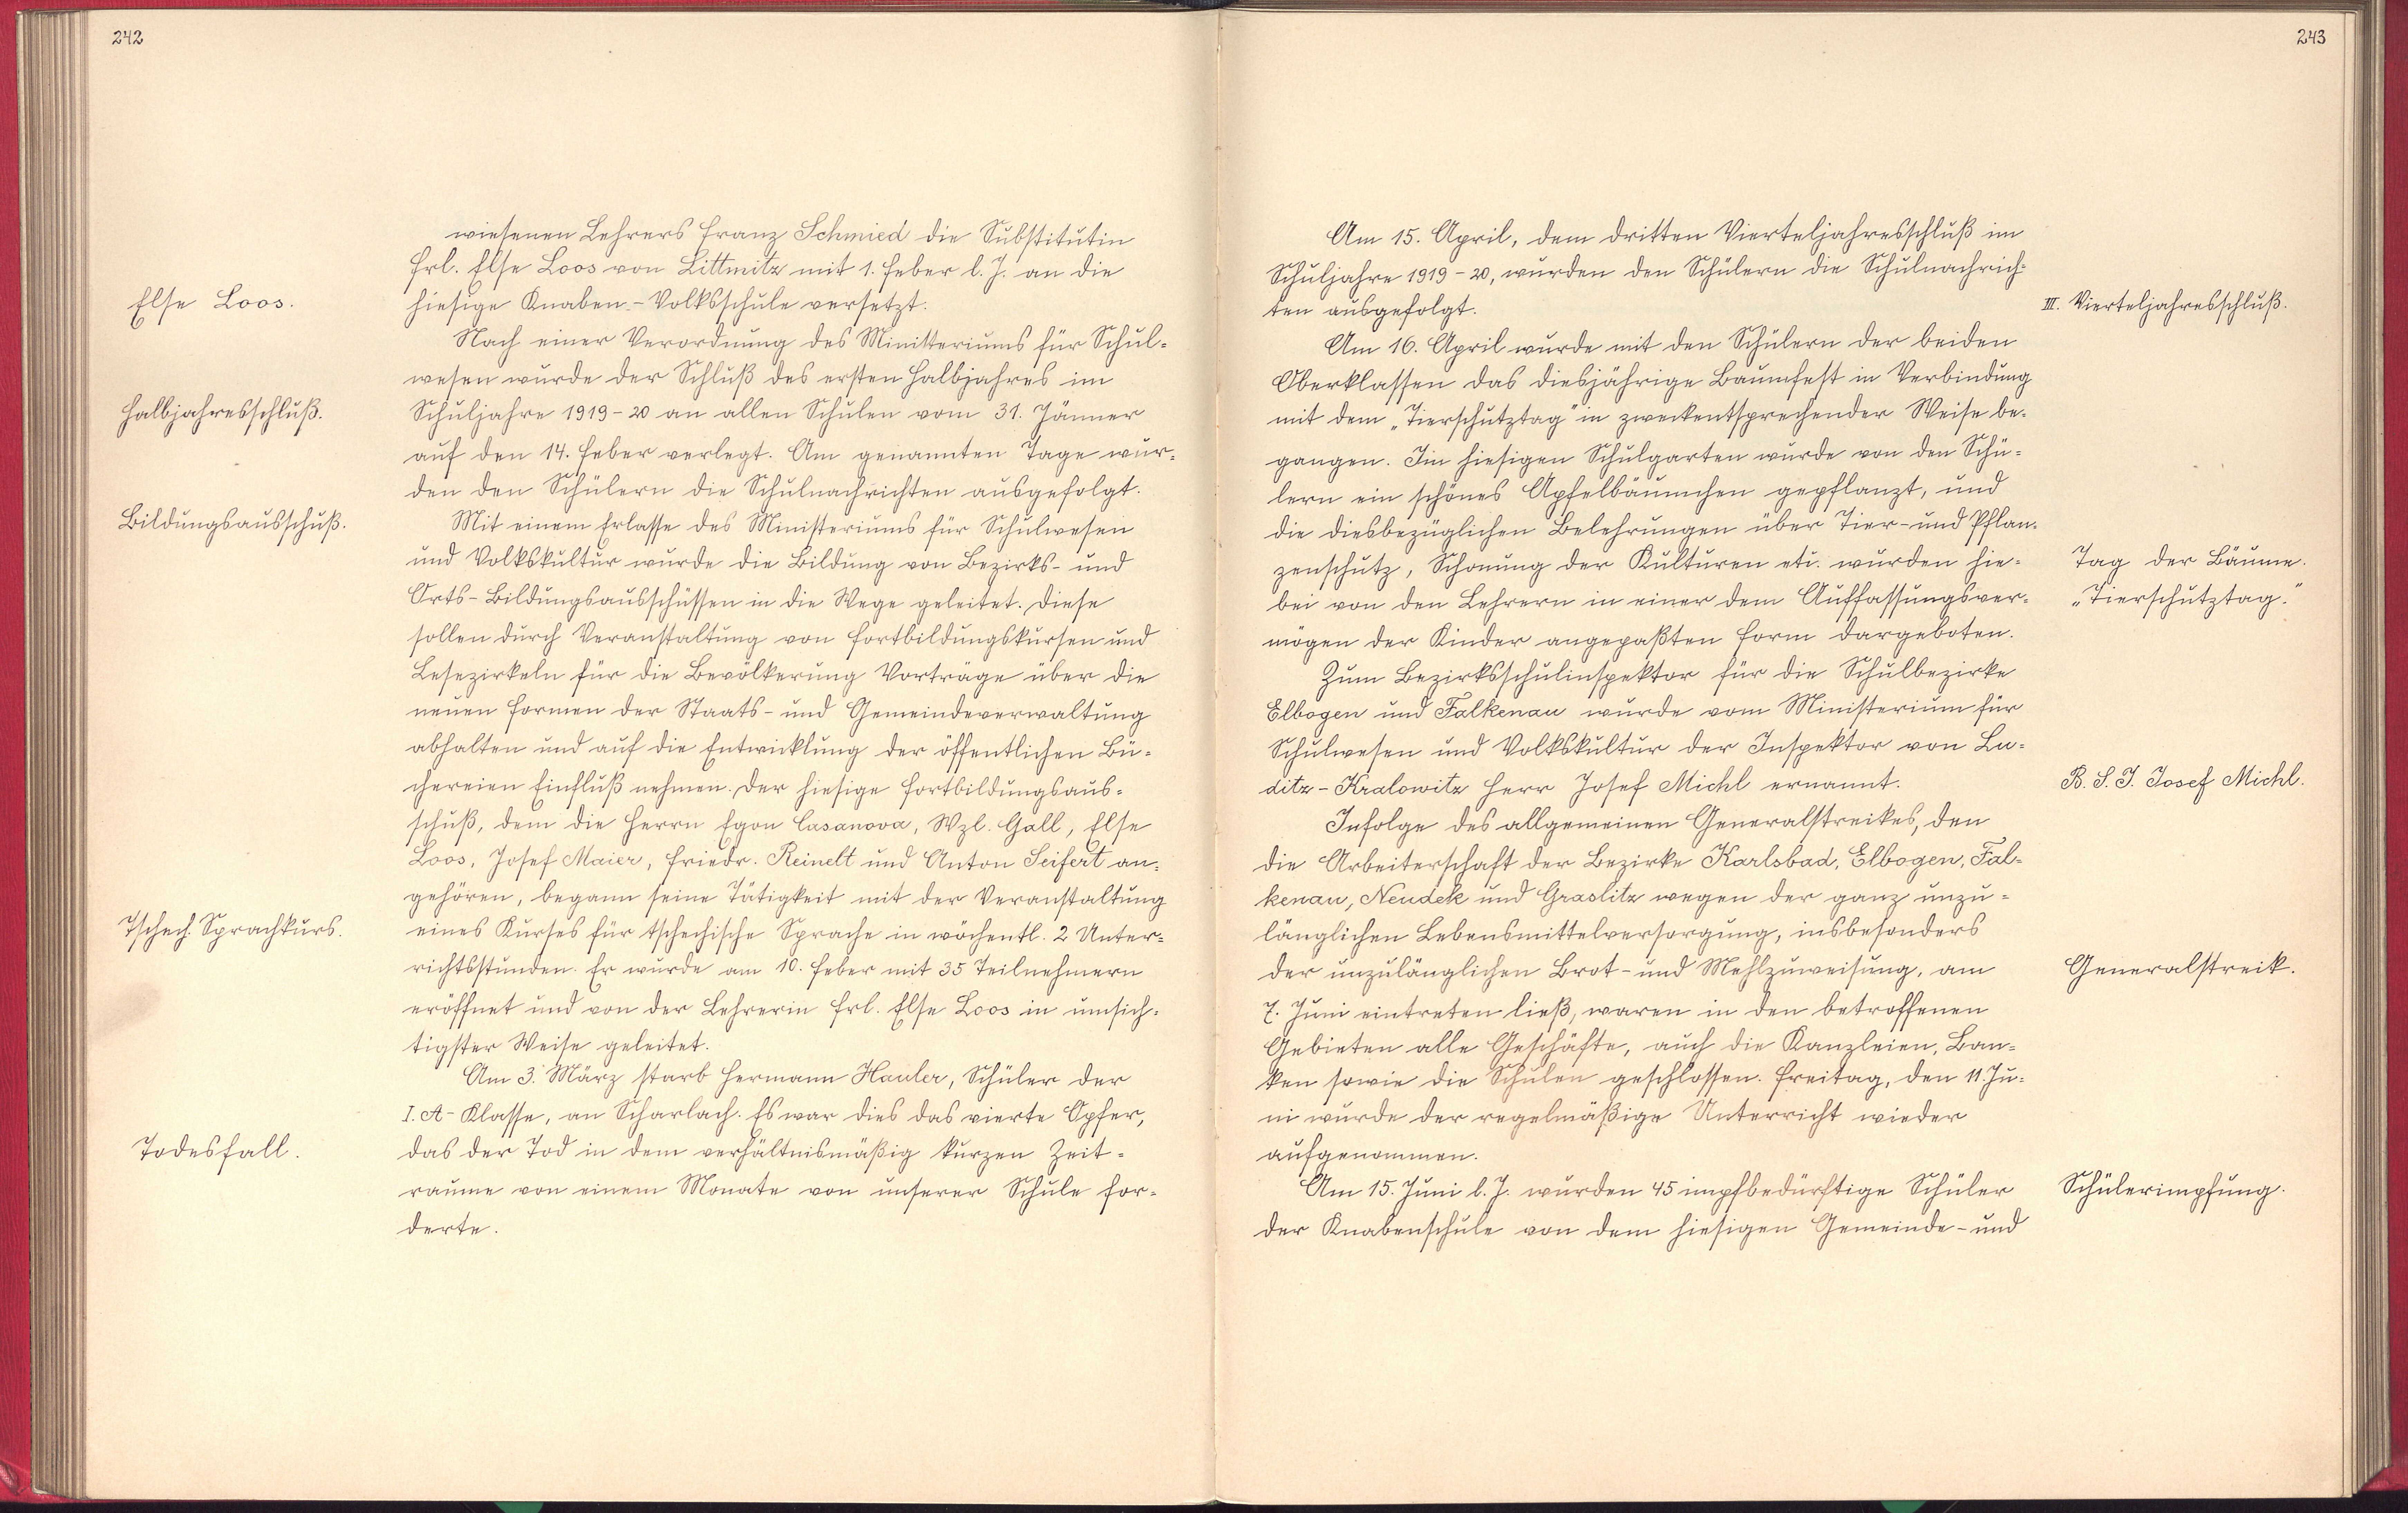 242
wiesenen Lehrers Franz Schmied die Substitutin
Frl. Else Loos von Littmitz mit 1. Feber l. J. an die
Else Loos.
hiesige Knaben-Volksschule versetzt.
Nach einer Verordnung des Ministeriums für Schul-
wesen wurde der Schluß des ersten Halbjahres im
Halbjahresschluß.
Schuljahre 1919-20 an allen Schulen vom 31. Jänner
auf den 14. Feber verlegt. Am genannten Tage wur-
den den Schülern die Schulnachrichten ausgefolgt.
Bildungsausschuß.
Mit einem Erlasse des Ministeriums für Schulwesen
und Volkskultur wurde die Bildung von Bezirks- und
Orts-Bildungsausschüssen in die Wege geleitet. Diese
sollen durch Veranstaltung von Fortbildungskursen und
Lesezirkeln für die Bevölkerung Vorträge über die
neuen Formen der Staats- und Gemeindeverwaltung
abhalten und auf die Entwicklung der öffentlichen Bü-
chereien Einfluß nehmen. Der hiesige Fortbildungsaus-
schuß, dem die Herrn Egon Casanova, Wzl. Gall, Else
Loos, Josef Maier, Friedr. Reinelt und Anton Seifert an-
gehören, begann seine Tätigkeit mit der Veranstaltung
Tschech. Sprachkurs.
eines Kurses für tschechische Sprache in wöchentl. 2 Unter-
richtsstunden. Er wurde am 10. Feber mit 35 Teilnehmern
eröffnet und von der Lehrerin Frl. Else Loos in umsich-
tigster Weise geleitet.
Am 3. März starb Hermann Hauler, Schüler der
I. A-Klasse, an Scharlach. Es war dies das vierte Opfer,
Todesfall.
das der Tod in dem verhältnismäßig kurzen Zeit-
raume von einem Monate von unserer Schule for-
derte.
243
Am 15. April, dem dritten Vierteljahresschluß im
Schuljahre 1919-20, wurden den Schülern die Schulnachrich-
ten ausgefolgt.
III. Vierteljahresschluß.
Am 16. April wurde mit den Schülern der beiden
Oberklassen das diesjährige Baumfest in Verbindung
mit dem „Tierschutztag" in zweckentsprechender Weise be-
gangen. Im hiesigen Schulgarten wurde von den Schü-
lern ein schönes Apfelbäumchen gepflanzt, und
die diesbezüglichen Belehrungen über Tier- und Pflan-
zenschutz, Schonung der Kulturen etc. wurden hie-
Tag der Bäume.
bei von den Lehrern in einer dem Auffassungsver-
„Tierschutztag."
mögen der Kinder angepaßten Form dargeboten.
Zum Bezirksschulinspektor für die Schulbezirke
Elbogen und Falkenau wurde vom Ministerium für
Schulwesen und Volkskultur der Inspektor von Lu-
ditz-Kralowitz Herr Josef Michl ernannt.
B. S. I. Josef Michl.
Infolge des allgemeinen Generalstreikes, den
die Arbeiterschaft der Bezirke Karlsbad, Elbogen, Fal-
kenau, Neudek und Graslitz wegen der ganz unzu-
länglichen Lebensmittelversorgung, insbesonders
der unzulänglichen Brot- und Mehlzuweisung, am
Generalstreik.
7. Juni eintreten ließ, waren in den betroffenen
Gebieten alle Geschäfte, auch die Kanzleien, Ban-
ken sowie die Schulen geschlossen. Freitag, den 11. Ju-
ni wurde der regelmäßige Unterricht wieder
aufgenommen.
Am 15. Juni l. J. wurden 45 impfbedürftige Schüler
Schülerimpfung.
der Knabenschule von dem hiesigen Gemeinde- und